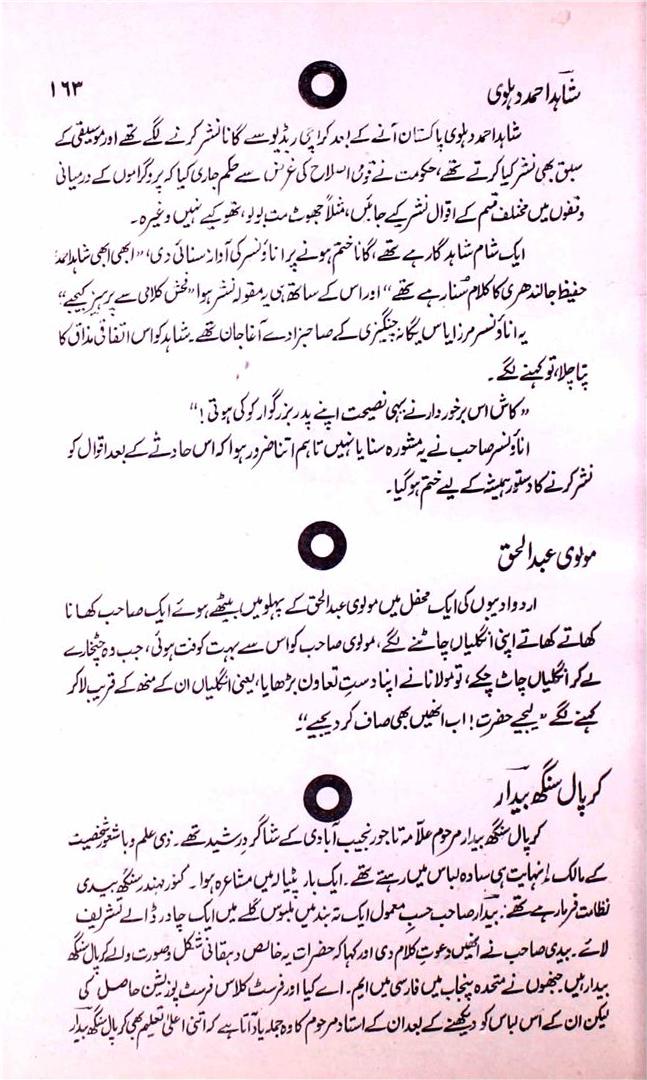 شاہد احمد دہلوی
۱۶۳
شاہد احمد دہلوی پاکستان آنے کے بعد کراچی ریڈیو سے گانا نشر کرنے لگے تھے اور موسیقی کے
سبق بھی نشر کیا کرتے تھے، حکومت نے قومی اصلاح کی غرض سے حکم جاری کیا کہ پروگراموں کے درمیانی
وقفوں میں مختلف قسم کے اقوال نشر کیے جائیں، مثلاً جھوٹ مت بولو، تھوکیے نہیں وغیرہ۔
ایک شام شاہد گا رہے تھے، گانا ختم ہونے پر اناؤنسر کی آواز سنائی دی، "ابھی ابھی شاہد احمد
حفیظ جالندھری کا کلام سُنا رہے تھے" اور اس کے ساتھ ہی یہ مقولہ نشر ہوا "فحش کلامی سے پرہیز کیجیے"
یہ اناؤنسر مرزا یاس یگانہ چنگیزی کے صاحبزادے آغا جان تھے۔ شاہد کو اس اتفاقی مذاق کا
پتا چلا، تو کہنے لگے۔
"کاش اس برخوردار نے یہی نصیحت اپنے پدر بزرگوار کو کی ہوتی!"
اناؤنسر صاحب نے یہ مشورہ سنا یا نہیں تاہم اتنا ضرور ہوا کہ اس حادثے کے بعد اقوال کو
نشر کرنے کا دستور ہمیشہ کے لیے ختم ہو گیا۔
مولوی عبدالحق
اردو ادیبوں کی ایک محفل میں مولوی عبدالحق کے پہلو میں بیٹھے ہوئے ایک صاحب کھانا
کھاتے کھاتے اپنی انگلیاں چاٹنے لگے، مولوی صاحب کو اس سے بہت کوفت ہوئی، جب وہ چٹخارے
لے کر انگلیاں چاٹ چکے، تو مولانا نے اپنا دستِ تعاون بڑھایا، یعنی انگلیاں ان کے منھ کے قریب لا کر
کہنے لگے "لیجیے حضرت! اب انھیں بھی صاف کر دیجیے"۔
کرپال سنگھ بیدار
کرپال سنگھ بیدار مرحوم علامہ تاجور نجیب آبادی کے شاگردِ رشید تھے۔ ذی علم و باشعور شخصیت
کے مالک، انہایت ہی سادہ لباس میں رہتے تھے۔ ایک بار پٹیالہ میں مشاعرہ ہوا۔ کنور مہندر سنگھ بیدی
نظامت فرما رہے تھے: بیدار صاحب حسبِ معمول ایک تہ بند میں ملبوس گلے میں ایک چادر ڈالے تشریف
لائے۔ بیدی صاحب نے انھیں دعوتِ کلام دی اور کہا کہ حضرات یہ خالص دہقانی شکل و صورت والے کرپال سنگھ
بیدار ہیں جنھوں نے متحدہ پنجاب میں فارسی میں ایم۔ اے کیا اور فرسٹ کلاس فرسٹ پوزیشن حاصل کی
لیکن ان کے اس لباس کو دیکھنے کے بعد ان کے استاد مرحوم کا وہ جملہ یاد آتا ہے کہ اتنی اعلیٰ تعلیم بھی کرپال سنگھ بیدار